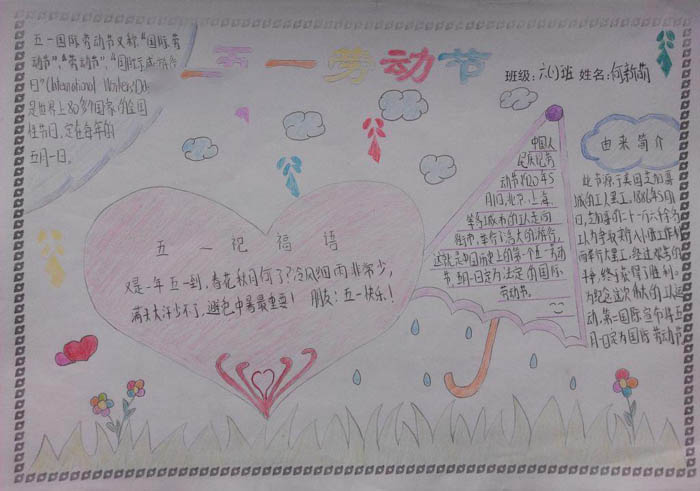 五一劳动节
班级:六(1)班 姓名:何新萌
五一国际劳动节又称"国际劳
动节","劳动节","国际示威游行
日"(International Workers'Day
是世界上80多个国家的全国
性节日,定在每年的
五月一日。
五一祝福语
又是一年五一到,春花秋月何了?冷风细雨非常少,
满头大汗少不了,避免中暑最重要! 朋友:五一快乐!
中国人
民庆祝劳
动节
月1日,北京、上海、
等城市的工人走向
街市,举行了浩大的游行,
这就是中国历史上的第一个五一劳动
节,
劳动节。
由来简介
此节源于美国芝加哥
城的工人罢工,1886年5月
1日,芝加哥的二十一万六千余名
工人为争取实行八小时工作制
而举行大罢工,经过艰苦的
终于获得了胜利。
为纪念这次伟大的工人运
动,第二国际宣布将五
月一日定为国际劳动节